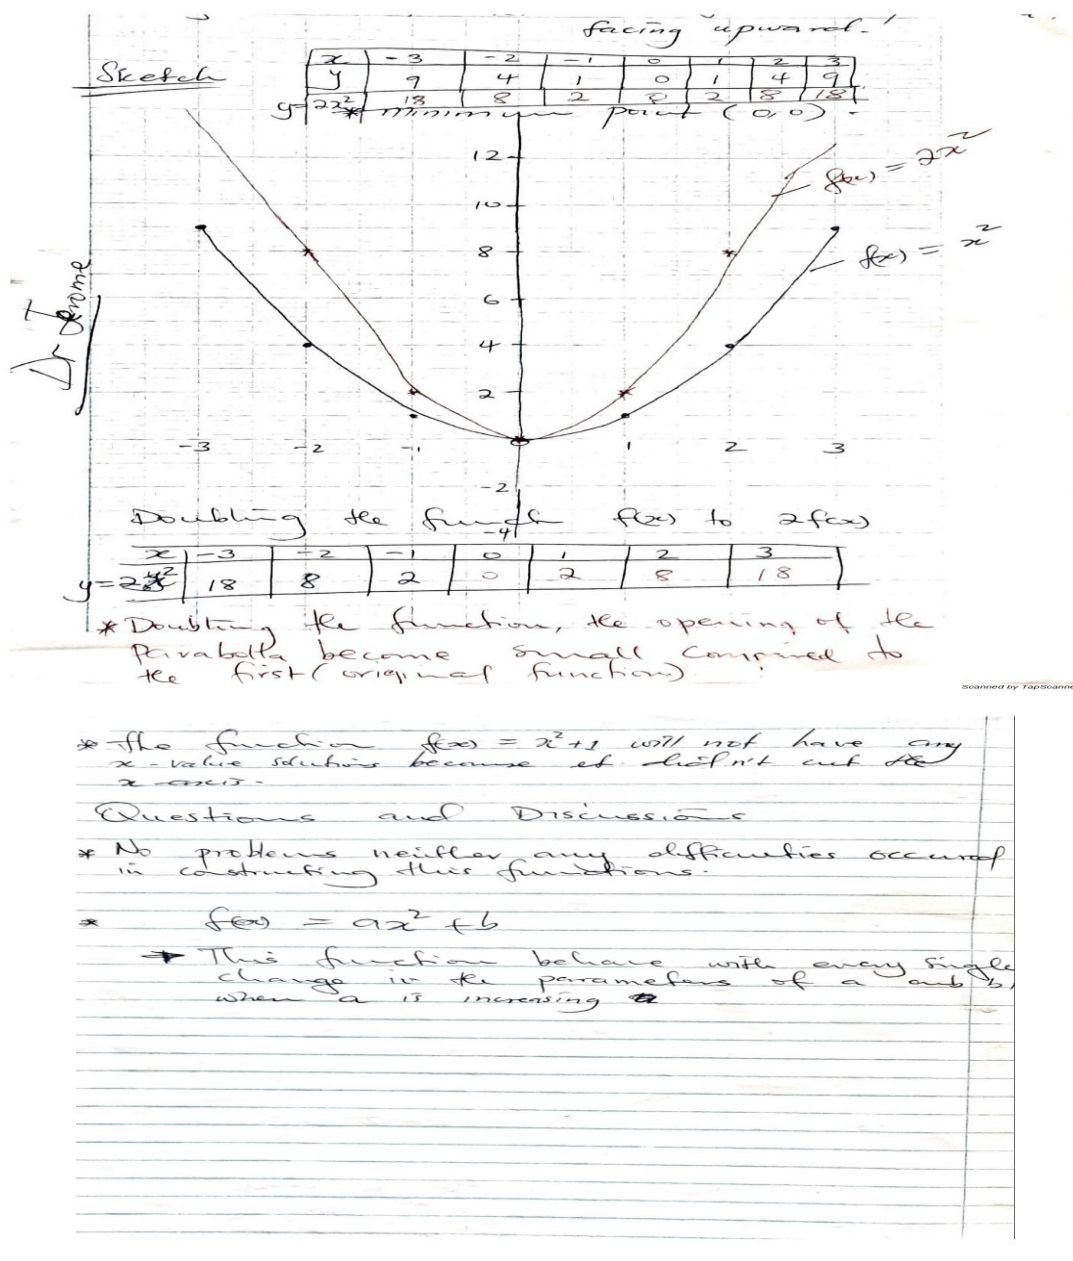 facing upward.
Sketch
x -3 -2 -1 0 1 2 3
y 9 4 1 0 1 4 9
y=2x² 18 8 2 0 2 8 18
* minimum point (0,0).
12
10
8
6
4
2
-3 -2 -1 1 2 3
-2
-4
f(x) = 2x²
f(x) = x²
Dr Jerome
Doubling the funch f(x) to 2f(x)
x -3 -2 -1 0 1 2 3
y=2x² 18 8 2 0 2 8 18
* Doubling the function, the opening of the
Parabolla become small compired to
the first (original function)
Scanned by TapScanne
* The function f(x) = x²+1 will not have any
x-value solutions because it didn't cut the
x-axis.
Questions and Discussions
* No problems neither any difficulties occured
in constructing this functions.
* f(x) = ax² + b
→ This function behave with every single
change in the parameters of a and b,
when a is increasing